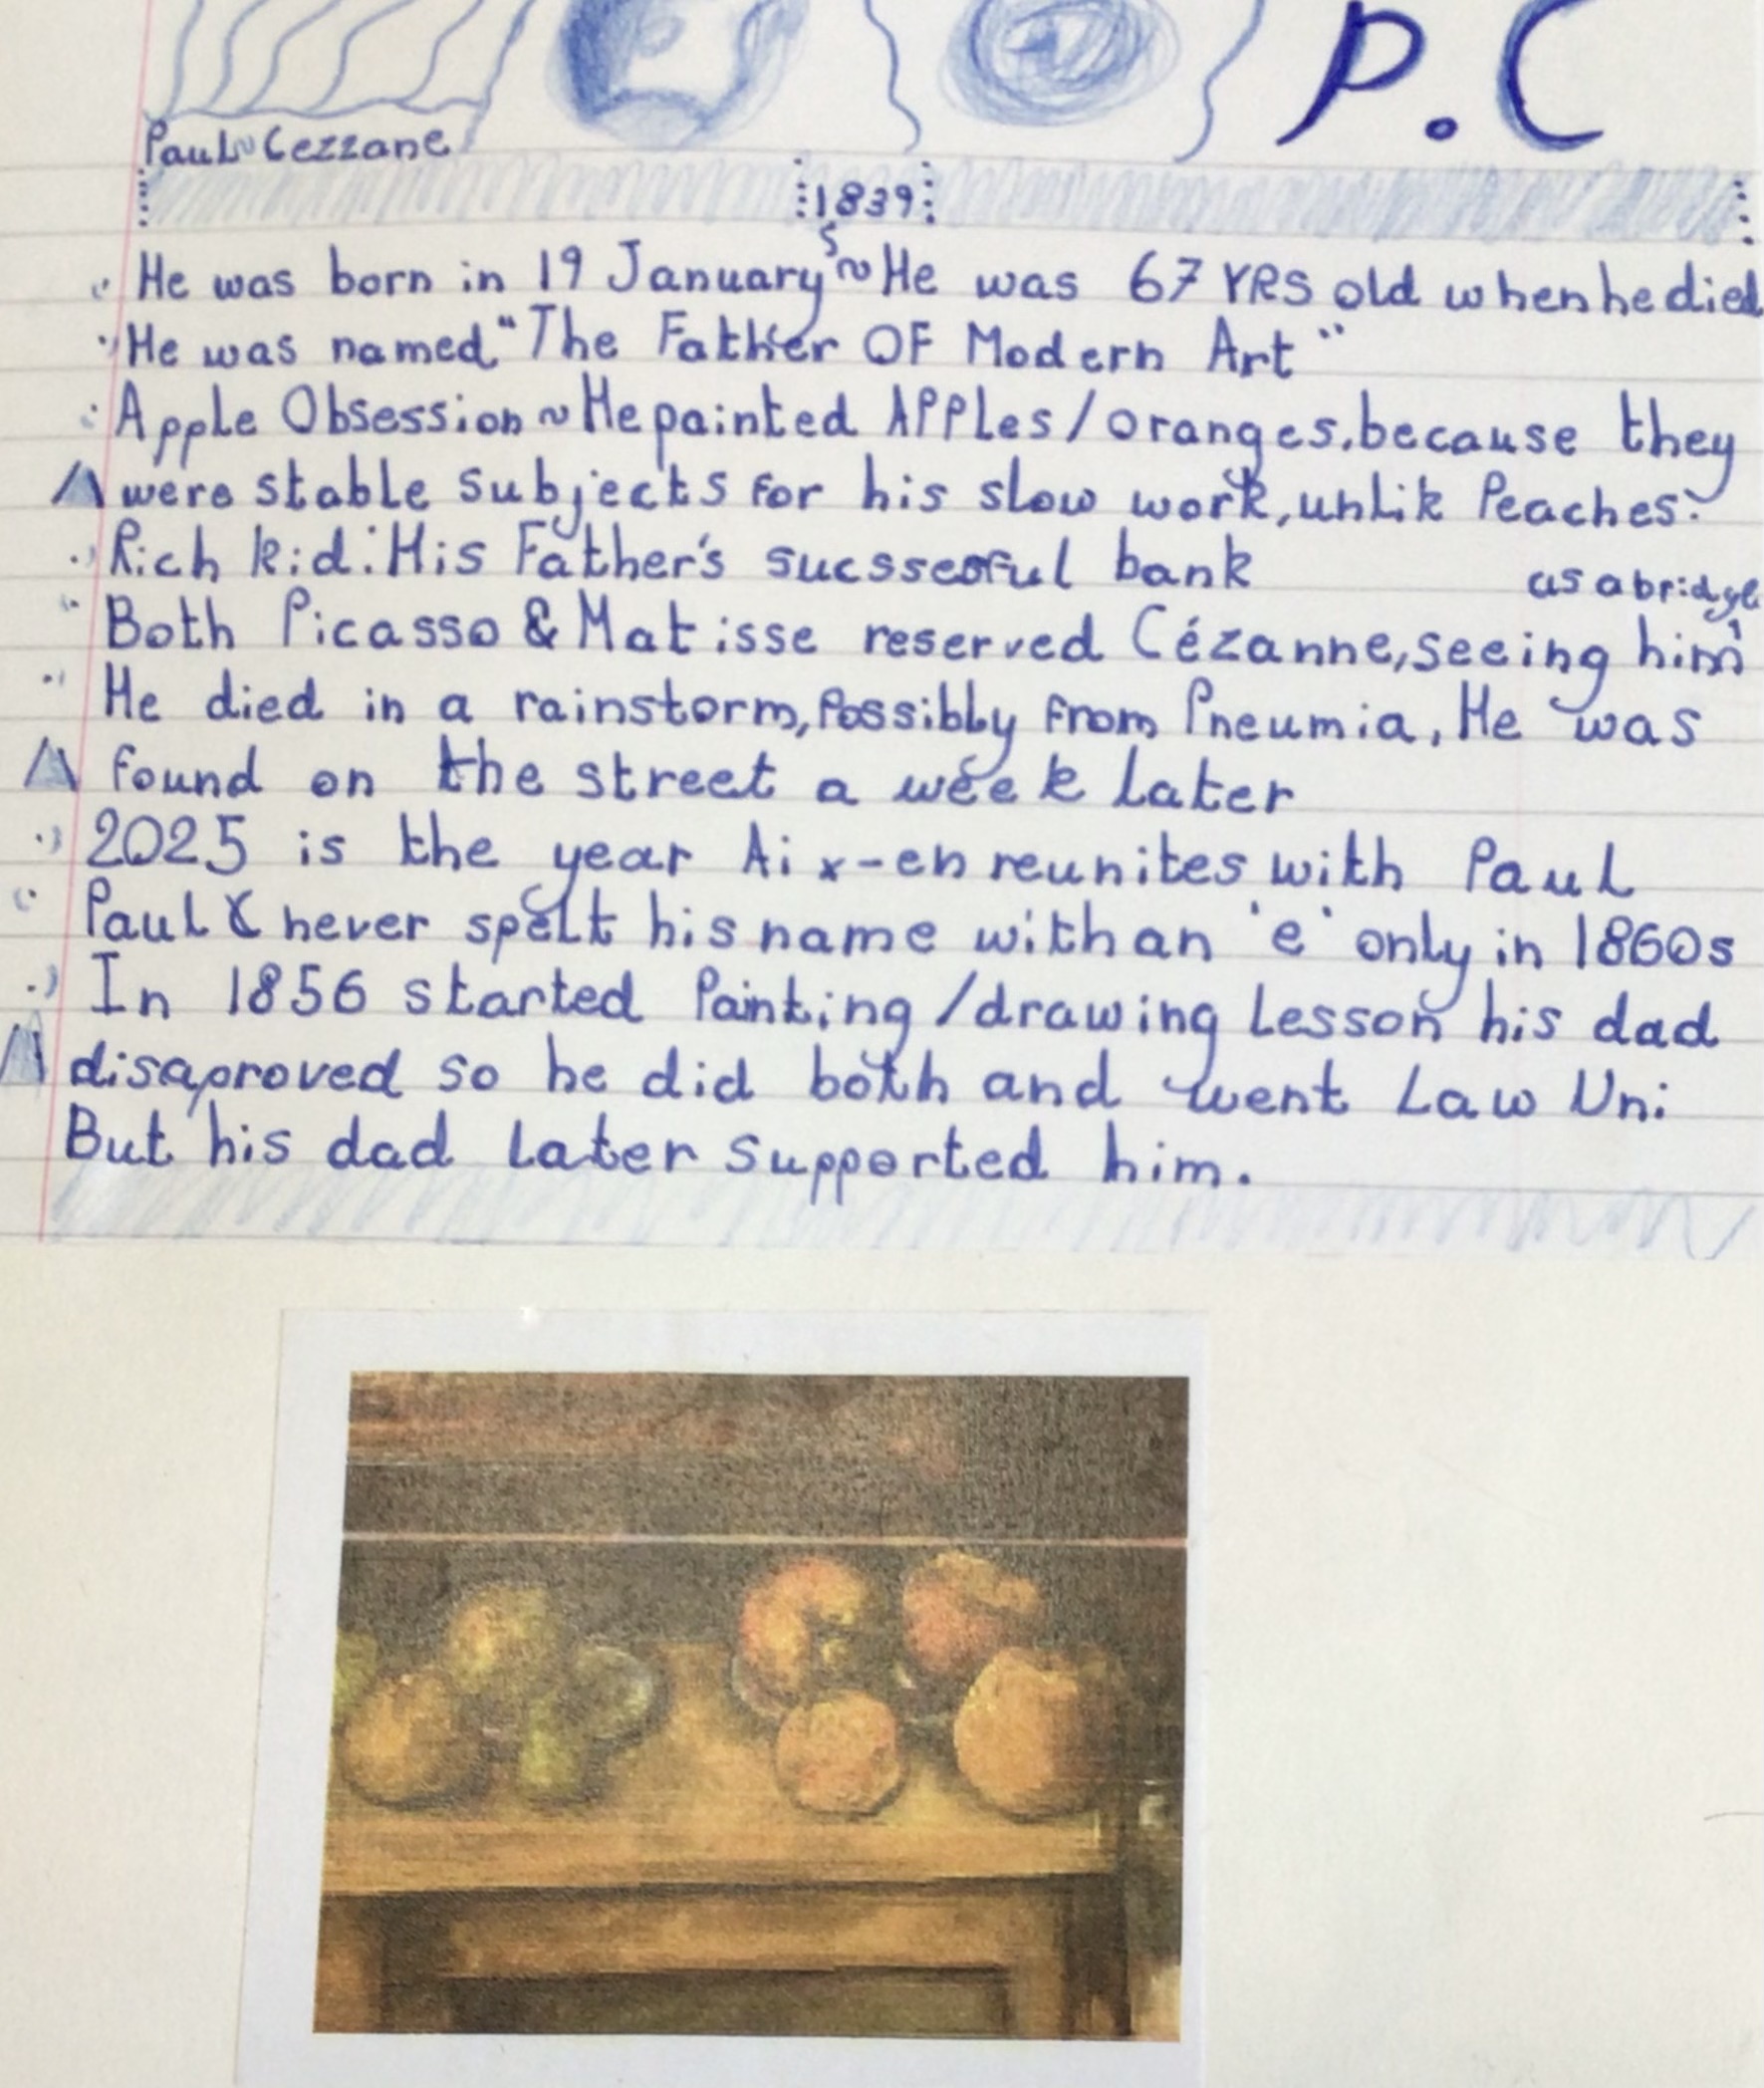 P.C
Paul Cezzane
1839
He was born in 19 January ~ He was 67 YRS old when he died
He was named "The Father OF Modern Art"
Apple Obsession ~ He painted APPles/oranges, because they
were stable subjects for his slow work, unlik Peaches.
Rich kid: His Father's sucssesful bank
as a bridge
Both Picasso & Matisse reserved Cézanne, seeing him
He died in a rainstorm, Possibly from Pneumia, He was
found on the street a week later
2025 is the year Aix-en reunites with Paul
Paul never spelt his name with an 'e' only in 1860s
In 1856 started Painting/drawing Lesson his dad
disaproved so he did both and went Law Uni
But his dad later supported him.